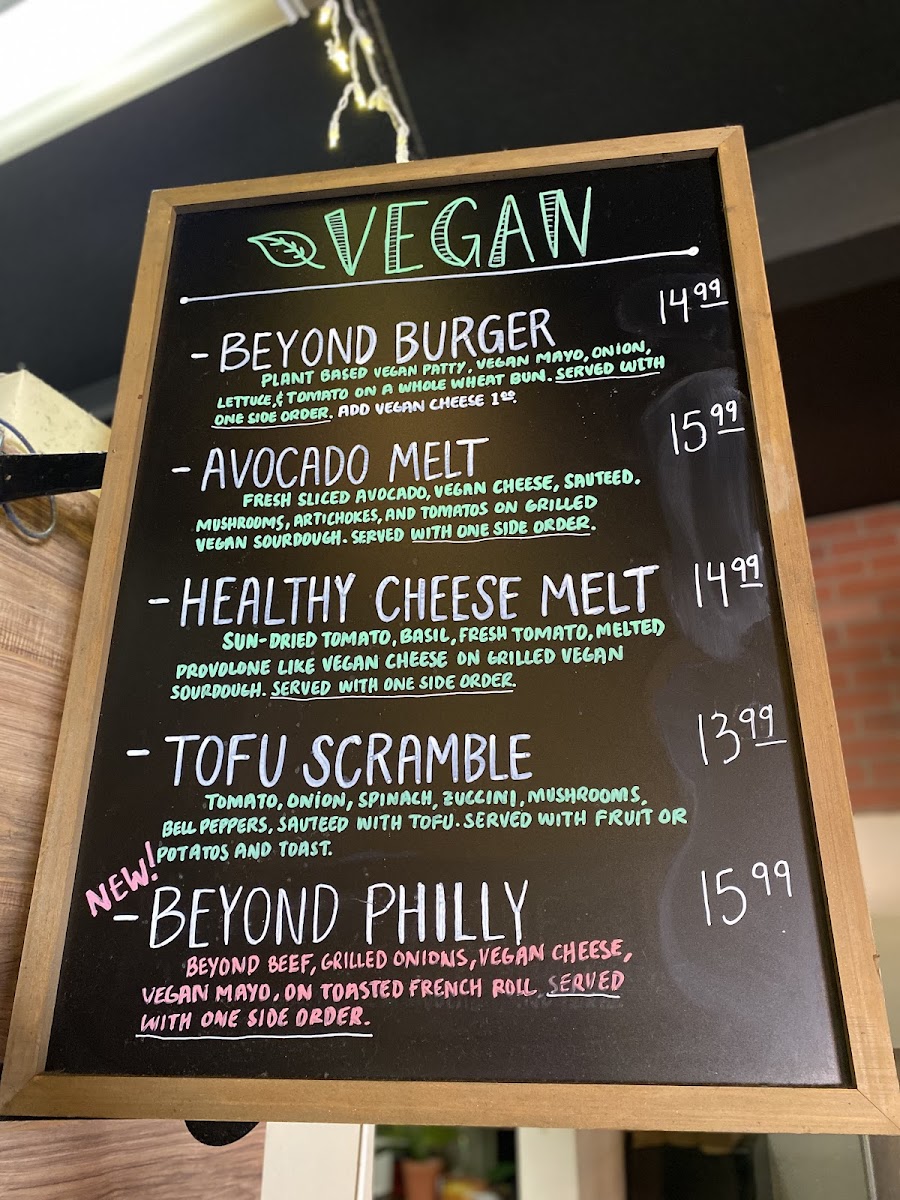 VEGAN
- BEYOND BURGER 14.99
PLANT BASED VEGAN PATTY, VEGAN MAYO, ONION,
LETTUCE, & TOMATO ON A WHOLE WHEAT BUN. SERVED WITH
ONE SIDE ORDER. ADD VEGAN CHEESE 1.00.
- AVOCADO MELT 15.99
FRESH SLICED AVOCADO, VEGAN CHEESE, SAUTEED.
MUSHROOMS, ARTICHOKES, AND TOMATOS ON GRILLED
VEGAN SOURDOUGH. SERVED WITH ONE SIDE ORDER.
- HEALTHY CHEESE MELT 14.99
SUN-DRIED TOMATO, BASIL, FRESH TOMATO, MELTED
PROVOLONE LIKE VEGAN CHEESE ON GRILLED VEGAN
SOURDOUGH. SERVED WITH ONE SIDE ORDER.
- TOFU SCRAMBLE 13.99
TOMATO, ONION, SPINACH, ZUCCINI, MUSHROOMS,
BELL PEPPERS, SAUTEED WITH TOFU. SERVED WITH FRUIT OR
POTATOS AND TOAST.
NEW!
- BEYOND PHILLY 15.99
BEYOND BEEF, GRILLED ONIONS, VEGAN CHEESE,
VEGAN MAYO, ON TOASTED FRENCH ROLL SERVED
WITH ONE SIDE ORDER.